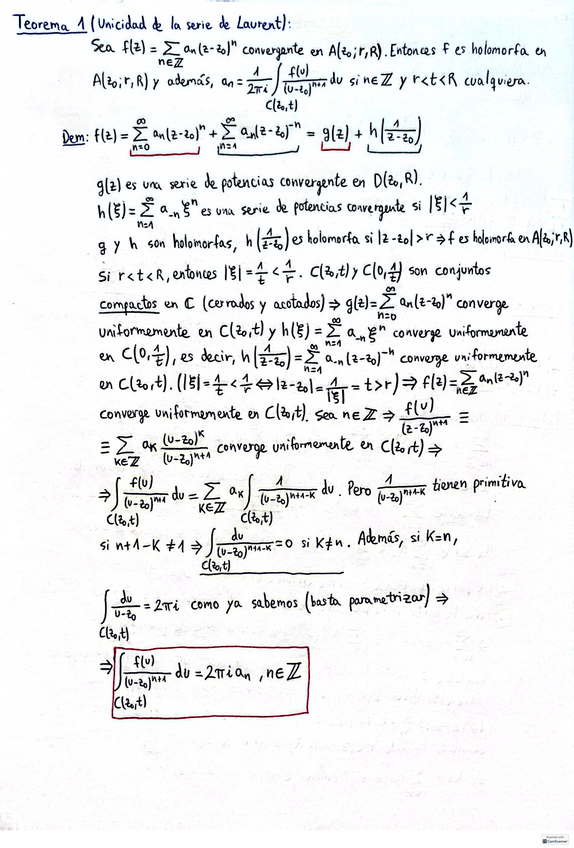 Teorema 1 (Unicidad de la serie de Laurent):
Sea f(z) = ∑_{n∈ℤ} aₙ(z-z₀)ⁿ convergente en A(z₀;r,R). Entonces f es holomorfa en
A(z₀;r,R) y además, aₙ = 1/(2πi) ∫_{C(z₀,t)} f(υ)/(υ-z₀)ⁿ⁺¹ dυ si n∈ℤ y r<t<R cualquiera.
Dem: f(z) = ∑_{n=0}^{∞} aₙ(z-z₀)ⁿ + ∑_{n=1}^{∞} a₋ₙ(z-z₀)⁻ⁿ = g(z) + h(1/(z-z₀))
g(z) es una serie de potencias convergente en D(z₀,R).
h(ξ) = ∑_{n=1}^{∞} a₋ₙ ξⁿ es una serie de potencias convergente si |ξ| < 1/r
g y h son holomorfas, h(1/(z-z₀)) es holomorfa si |z-z₀|>r ⇒ f es holomorfa en A(z₀;r,R)
Si r<t<R, entonces |ξ| = 1/t < 1/r. C(z₀,t) y C(0,1/t) son conjuntos
compactos en ℂ (cerrados y acotados) ⇒ g(z) = ∑_{n=0}^{∞} aₙ(z-z₀)ⁿ converge
uniformemente en C(z₀,t) y h(ξ) = ∑_{n=1}^{∞} a₋ₙ ξⁿ converge uniformemente
en C(0,1/t), es decir, h(1/(z-z₀)) = ∑_{n=1}^{∞} a₋ₙ(z-z₀)⁻ⁿ converge uniformemente
en C(z₀,t). (|ξ| = 1/t < 1/r ⇔ |z-z₀| = 1/|ξ| = t > r) ⇒ f(z) = ∑_{n∈ℤ} aₙ(z-z₀)ⁿ
converge uniformemente en C(z₀,t). Sea n∈ℤ ⇒ f(υ)/(z-z₀)ⁿ⁺¹ ≡
≡ ∑_{K∈ℤ} a_K (υ-z₀)^K/(υ-z₀)ⁿ⁺¹ converge uniformemente en C(z₀,t) ⇒
⇒ ∫_{C(z₀,t)} f(υ)/(υ-z₀)ⁿ⁺¹ dυ = ∑_{K∈ℤ} a_K ∫_{C(z₀,t)} 1/(υ-z₀)^{n+1-K} dυ. Pero 1/(υ-z₀)^{n+1-K} tienen primitiva
si n+1-K ≠ 1 ⇒ ∫_{C(z₀,t)} dυ/(υ-z₀)^{n+1-K} = 0 si K≠n. Además, si K=n,
∫_{C(z₀,t)} dυ/(υ-z₀) = 2πi como ya sabemos (basta parametrizar) ⇒
⇒ ∫_{C(z₀,t)} f(υ)/(υ-z₀)ⁿ⁺¹ dυ = 2πi aₙ, n∈ℤ
CamScanner